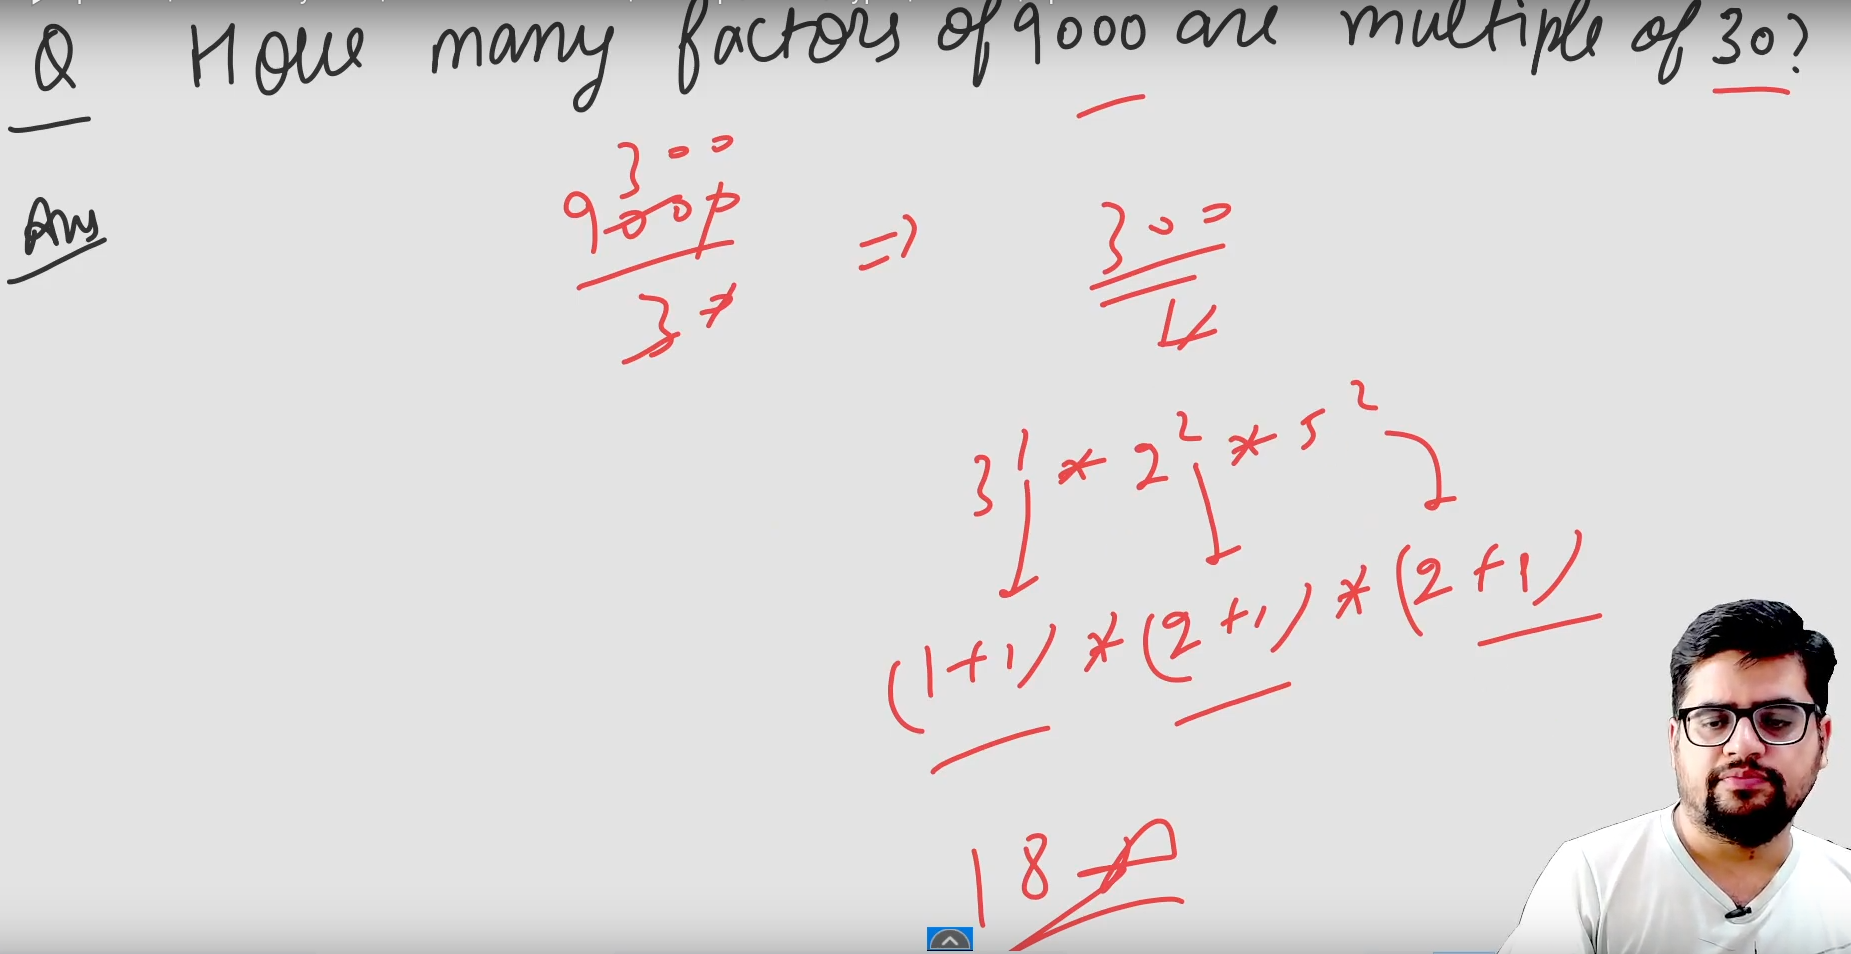 Q How many factors of 9000 are multiple of 30?
Ans
300
9000
30
=>
300
3^1 * 2^2 * 5^2
(1+1) * (2+1) * (2+1)
18